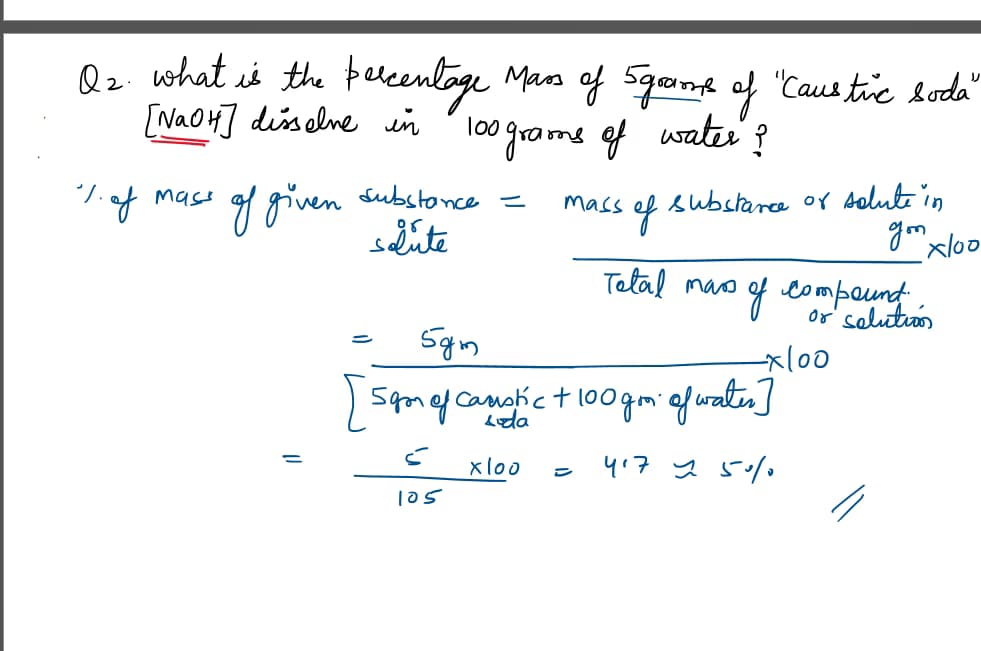 Q2. what is the percentage Mass of 5grams of "Caustic soda"
[NaOH] dissolve in 100 grams of water ?
% of mass of given substance = mass of substance or solute in
or
solute
gm x100
Total mass of compound.
or solution
= 5gm x100
[5gm of caustic + 100 gm. of water]
soda
= 5 x100 = 4.7 ≈ 5%
105